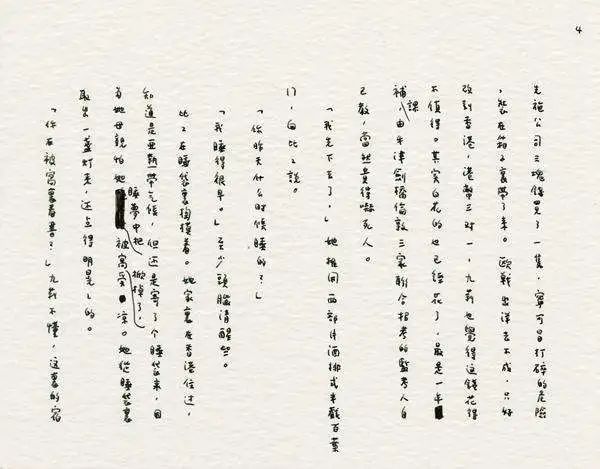 4
先施公司三塊錢買了一隻，寧可冒打碎的危險
，裝在箱子裏帶了來。歐戰出洋去不成，只好
改到香港，港幣三对一，九莉也覺得這錢花得
不值得。其实白花的也已經花了，最是一年
補課，由牛津劍橋倫敦三家聯合招考的監考人自
己教，當然貴得嚇死人。
「我先下去了，」她推開西部片酒排式半截百葉
门，向比比說。
「你昨天什么时候睡的？」
「我睡得很早。」至少頭腦清醒些。
比比在睡袋裏掏摸着。她家裏在香港住过，
知道是亞熱帶气候，但还是寄了个睡袋來，因
为她母親怕她睡夢中把被窩掀掉了，受凉。她從睡袋裏
取出一盞灯來，还点得明晃晃的。
「你在被窩裏看書？」九莉不懂，这裏的宿